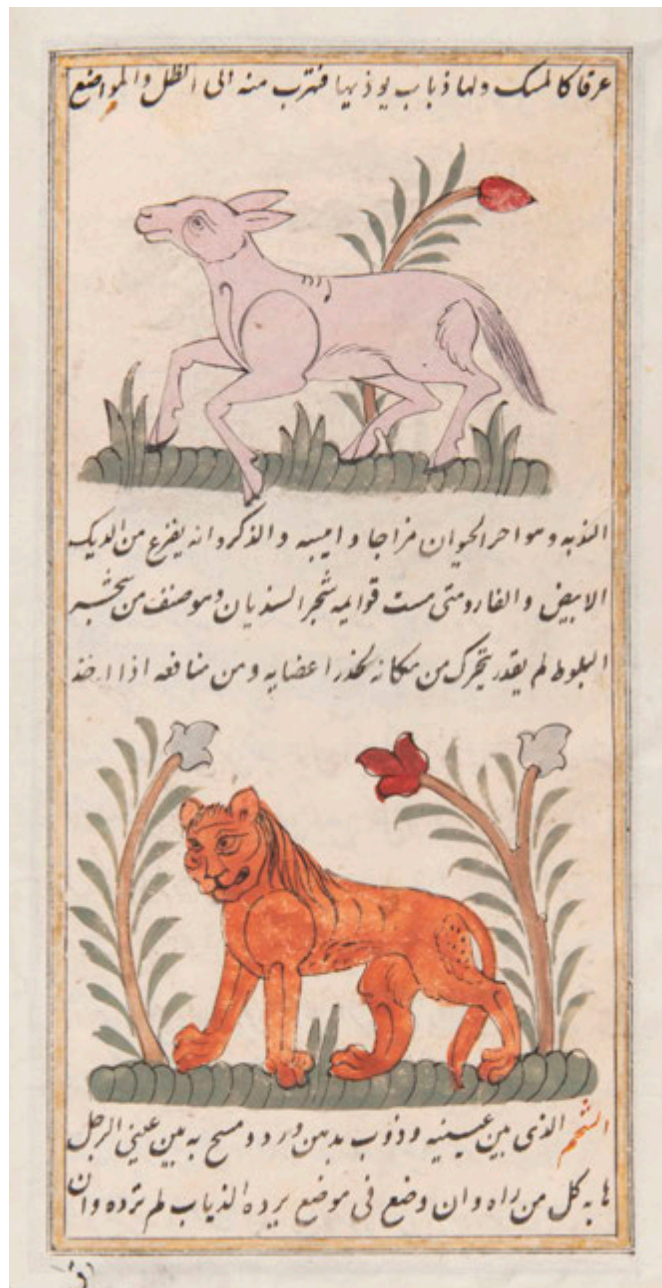 عرقا كالمسك ولها ذباب يوذيها فتهرب منه الى الظل والمواضع
الندبه وهو احر الحيوان مزاجا وايبسه والذكر وانه يفزع من الديك
الابيض والفار ومتى مست قوايمه شجر السنديان وهو صنف من شجر
البلوط لم يقدر يتحرك من مكانه لخدر اعضايه ومن منافعه اذا اخذ
الشحم الذى بين عينيه وذوب بدهن ورد ومسح به بين عينى الرجل
هابه كل من راه وان وضع فى موضع يرده الذياب لم ترده وان